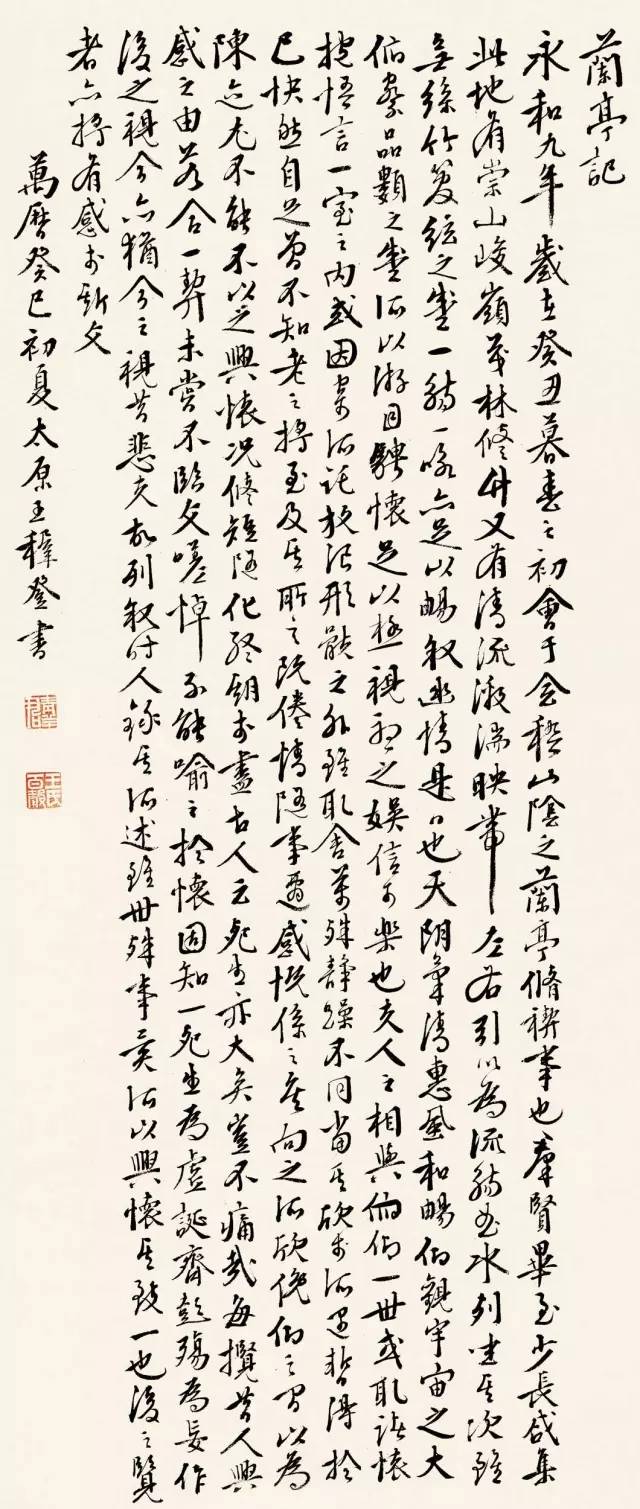 蘭亭記
永和九年歲在癸丑暮春之初會于會稽山陰之蘭亭脩禊事也羣賢畢至少長咸集
此地有崇山峻嶺茂林修竹又有清流激湍映帶左右引以為流觴曲水列坐其次雖
無絲竹管絃之盛一觴一詠亦足以暢叙幽情是日也天朗氣清惠風和暢仰觀宇宙之大
俯察品類之盛所以游目騁懷足以極視聽之娛信可樂也夫人之相與俯仰一世或取諸懷
抱悟言一室之內或因寄所託放浪形骸之外雖取舍萬殊靜躁不同當其欣於所遇暫得於
已快然自足曾不知老之將至及其所之既倦情隨事遷感慨係之矣向之所欣俛仰之間以為
陳迹尤不能不以之興懷況修短隨化終期於盡古人云死生亦大矣豈不痛哉每攬昔人興
感之由若合一契未嘗不臨文嗟悼不能喻之於懷固知一死生為虛誕齊彭殤為妄作
後之視今亦猶今之視昔悲夫故列叙時人錄其所述雖世殊事異所以興懷其致一也後之覽
者亦將有感於斯文
萬曆癸巳初夏太原王穉登書
王氏百穀